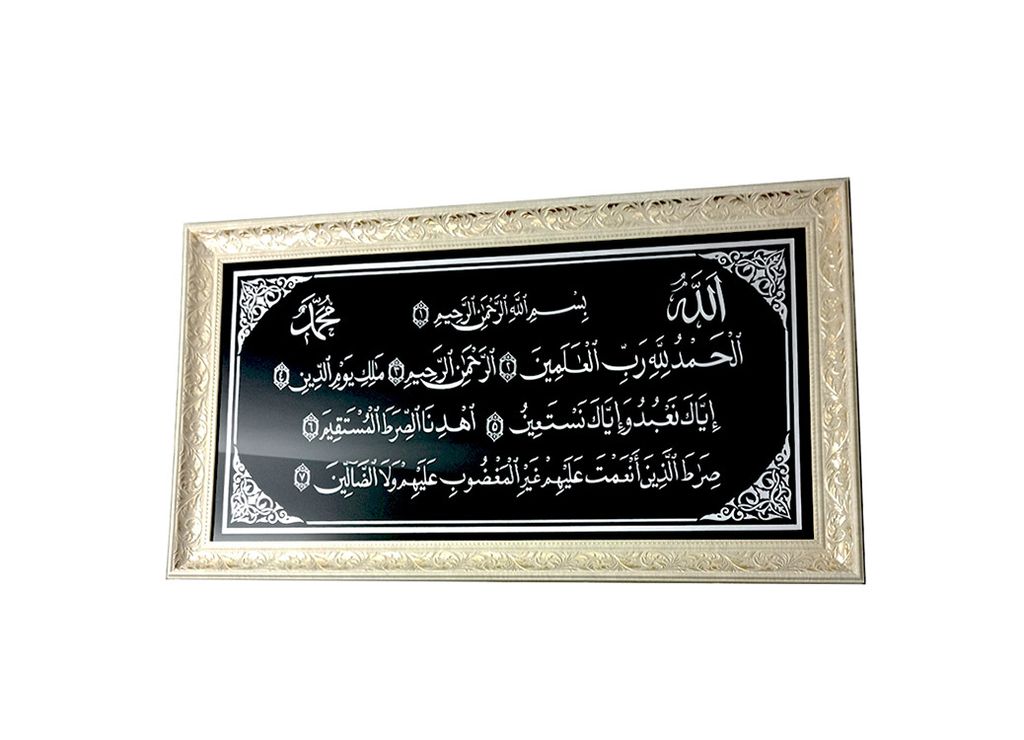 الله
محمد
بِسْمِ اللَّهِ الرَّحْمَٰنِ الرَّحِيمِ ١
الْحَمْدُ لِلَّهِ رَبِّ الْعَالَمِينَ ٢ الرَّحْمَٰنِ الرَّحِيمِ ٣ مَالِكِ يَوْمِ الدِّينِ ٤
إِيَّاكَ نَعْبُدُ وَإِيَّاكَ نَسْتَعِينُ ٥ اهْدِنَا الصِّرَطَ الْمُسْتَقِيمَ ٦
صِرَٰطَ الَّذِينَ أَنْعَمْتَ عَلَيْهِمْ غَيْرِ الْمَغْضُوبِ عَلَيْهِمْ وَلَا الضَّالِّينَ ٧